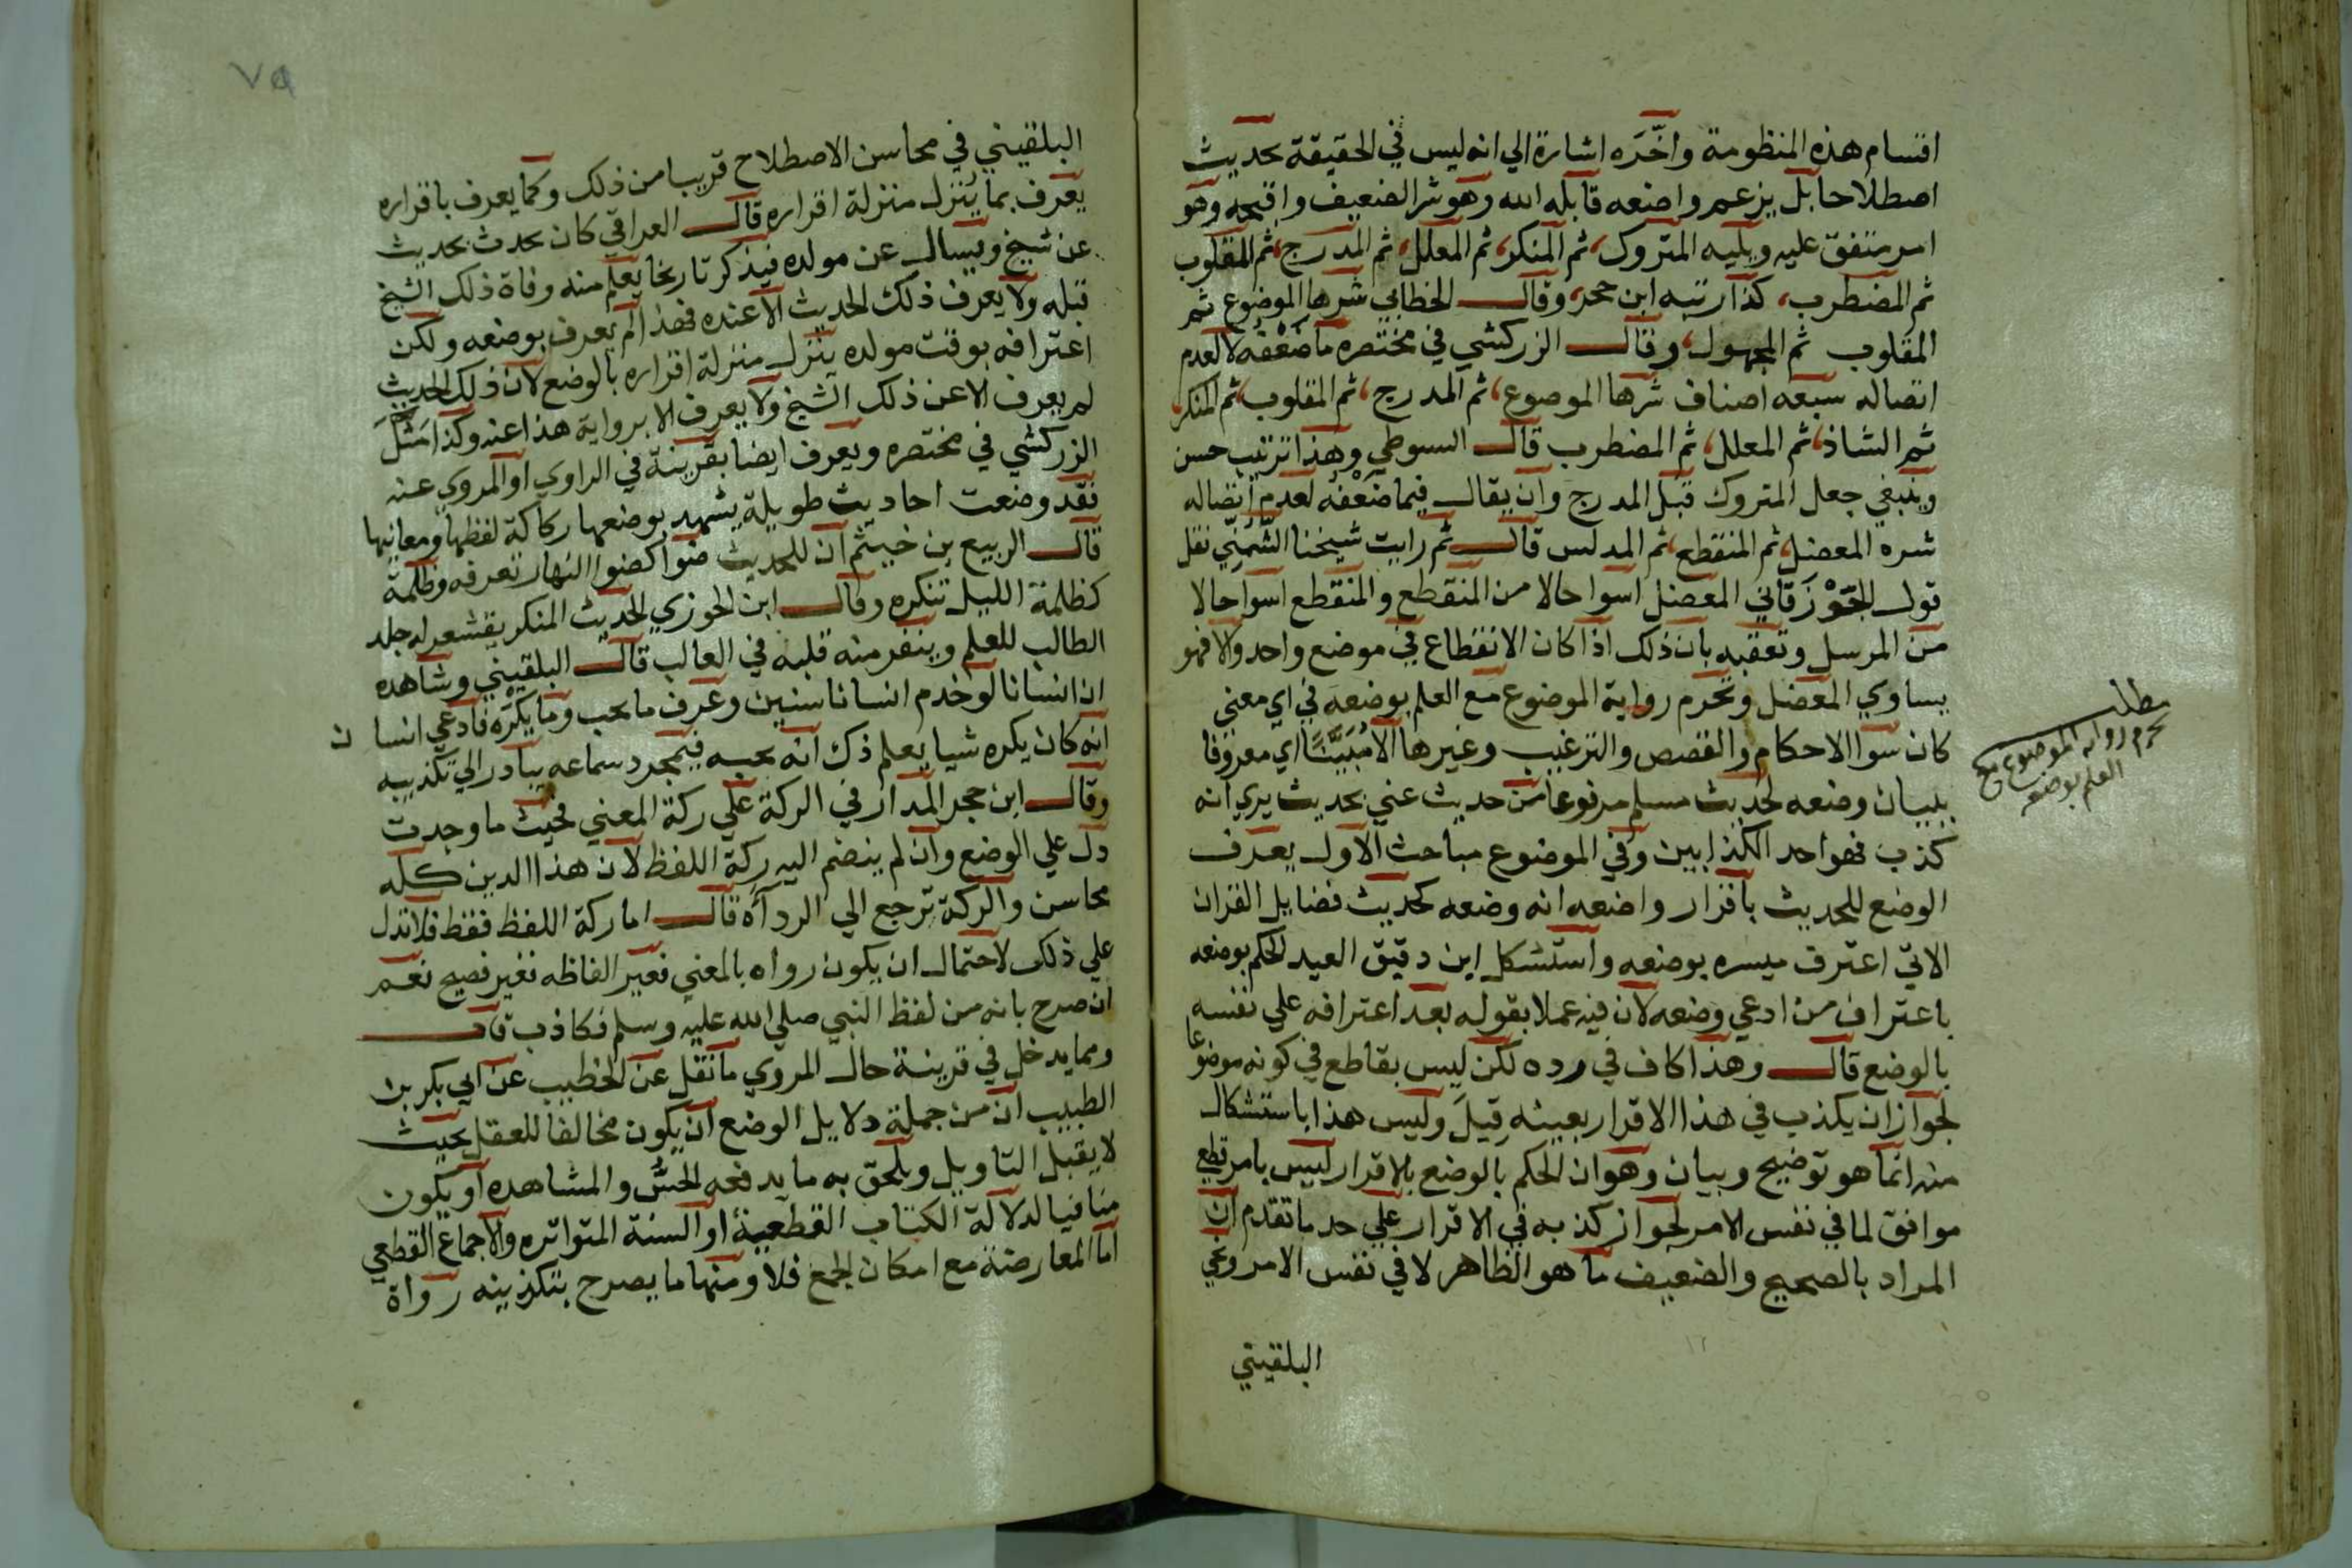 اقسام هذه المنظومة واخَّرَه اشارة الي انه ليس في الحقيقة بحديث
اصطلاحا بل يزعم واضعه قابله الله وهو شر الضعيف واقبحه وهو
امر متفق عليه ويليه المتروك، ثم المنكر، ثم المعلل، ثم المدرج، ثم المقلوب
ثم المضطرب، كذا رتبه ابن حجر، وقال الخطابي شرها الموضوع ثم
المقلوب ثم المجهول، وقال الزركشي في مختصره ما ضَعْفه لا لعدم
اتصاله سبعه اصناف شرها الموضوع، ثم المدرج، ثم المقلوب، ثم المنكر،
ثم الشاذ، ثم المعلل، ثم المضطرب قال السيوطي وهذا ترتيب حسن
وينبغي جعل المتروك قبل المدرج وان يقال فيما ضَعْفه لعدم اتصاله
شره المعضل، ثم المنقطع، ثم المدلس قال ثم رايت شيخنا الشُّمنِّي نقل
قول الجَوْزَقاني المعضل اسوا حالا من المنقطع والمنقطع اسوا حالا
من المرسل وتعقبه بان ذلك اذا كان الانقطاع في موضع واحد والا فهو
يساوي المعضل وتحرم رواية الموضوع مع العلم بوضعه في اي معني
كان سوا الاحكام والقصص والترغيب وغيرها الا مُبَيَّنًا اي مقرونا
ببيان وضعه لحديث مسلم مرفوعا من حديث عني بحديث يري انه
كذب فهو احد الكذابين وفي الموضوع مباحث الاول يعرف
الوضع للحديث باقرار واضعه انه وضعه كحديث فضايل القران
الاتي اعترف ميسره بوضعه واستشكل ابن دقيق العيد الحكم بوضعه
باعتراف من ادعي وضعه لان فيه عملا بقوله بعد اعترافه علي نفسه
بالوضع قال وهذا كاف في رده لكن ليس بقاطع في كونه موضوعا
لجواز ان يكذب في هذا الاقرار بعينه قِيلَ وليس هذا باستشكال
منه انما هو توضيح وبيان وهو ان الحكم بالوضع بالاقرار ليس بامر قطع
موافق لما في نفس الامر لجواز كذبه في الاقرار علي حد ما تقدم ان
المراد بالصحيح والضعيف ما هو الظاهر لا في نفس الامر وعي
البلقيني
مطلب
تحرم رواية الموضوع مع
العلم بوضعه
٧٩
البلقيني في محاسن الاصطلاح قريبا من ذلك وكما يعرف باقراره
يعرف بما يُنزل منزلة اقراره قال العراقي كان يحدث بحديث
عن شيخ ويسال عن مولده فيذكر تاريخا يعلم منه وفاة ذلك الشيخ
قبله ولا يعرف ذلك الحديث الا عنده فهذا لم يعرف بوضعه ولكن
اعترافه بوقت مولده ينزل منزلة اقراره بالوضع لان ذلك الحديث
لم يعرف الا عن ذلك الشيخ ولا يعرف الا برواية هذا عنه وكذا مَثَّلَ
الزركشي في مختصره ويعرف ايضا بقرينة في الراوي او المروي عنه
فقد وضعت احاديث طويلة يشهد بوضعها ركاكة لفظها ومعانيها
قال الربيع بن خيثم ان للحديث ضوا كضوا النهار تعرفه وظلمة
كظلمة الليل تنكره وقال ابن الجوزي الحديث المنكر يقشعر له جلد
الطالب للعلم وينفر منه قلبه في الغالب قال البلقيني وشاهده
ان انسانا لو خدم انسانا سنين وعرف ما يحب وما يكره فادعي انسان
انه كان يكره شيا يعلم ذك انه يحبه فبمجرد سماعه يبادر الي تكذيبه
وقال ابن حجر المدار في الركة علي ركة المعني فحيث ما وجدت
دل علي الوضع وان لم ينضم اليه ركة اللفظ لان هذا الدين كله
محاسن والركة ترجع الي الرداأه قال اما ركة اللفظ فقط فلا تدل
علي ذلك لاحتمال ان يكون رواه بالمعني فغير الفاظه بغير فصيح نعم
ان صرح بانه من لفظ النبي صلي الله عليه وسلم فكاذب قال
ومما يدخل في قرينة حال المروي ما نقل عن الخطيب عن ابي بكر بن
الطبيب ان من جملة دلايل الوضع ان يكون مخالفا للعقل بحيث
لا يقبل التاويل ويلحق به ما يدفعه الحسُّ والمشاهده او يكون
منافيا لدلالة الكتاب القطعية او السنة المتواتره والاجماع القطعي
اما المعارضة مع امكان الجمع فلا ومنها ما يصرح بتكذيبه رواة